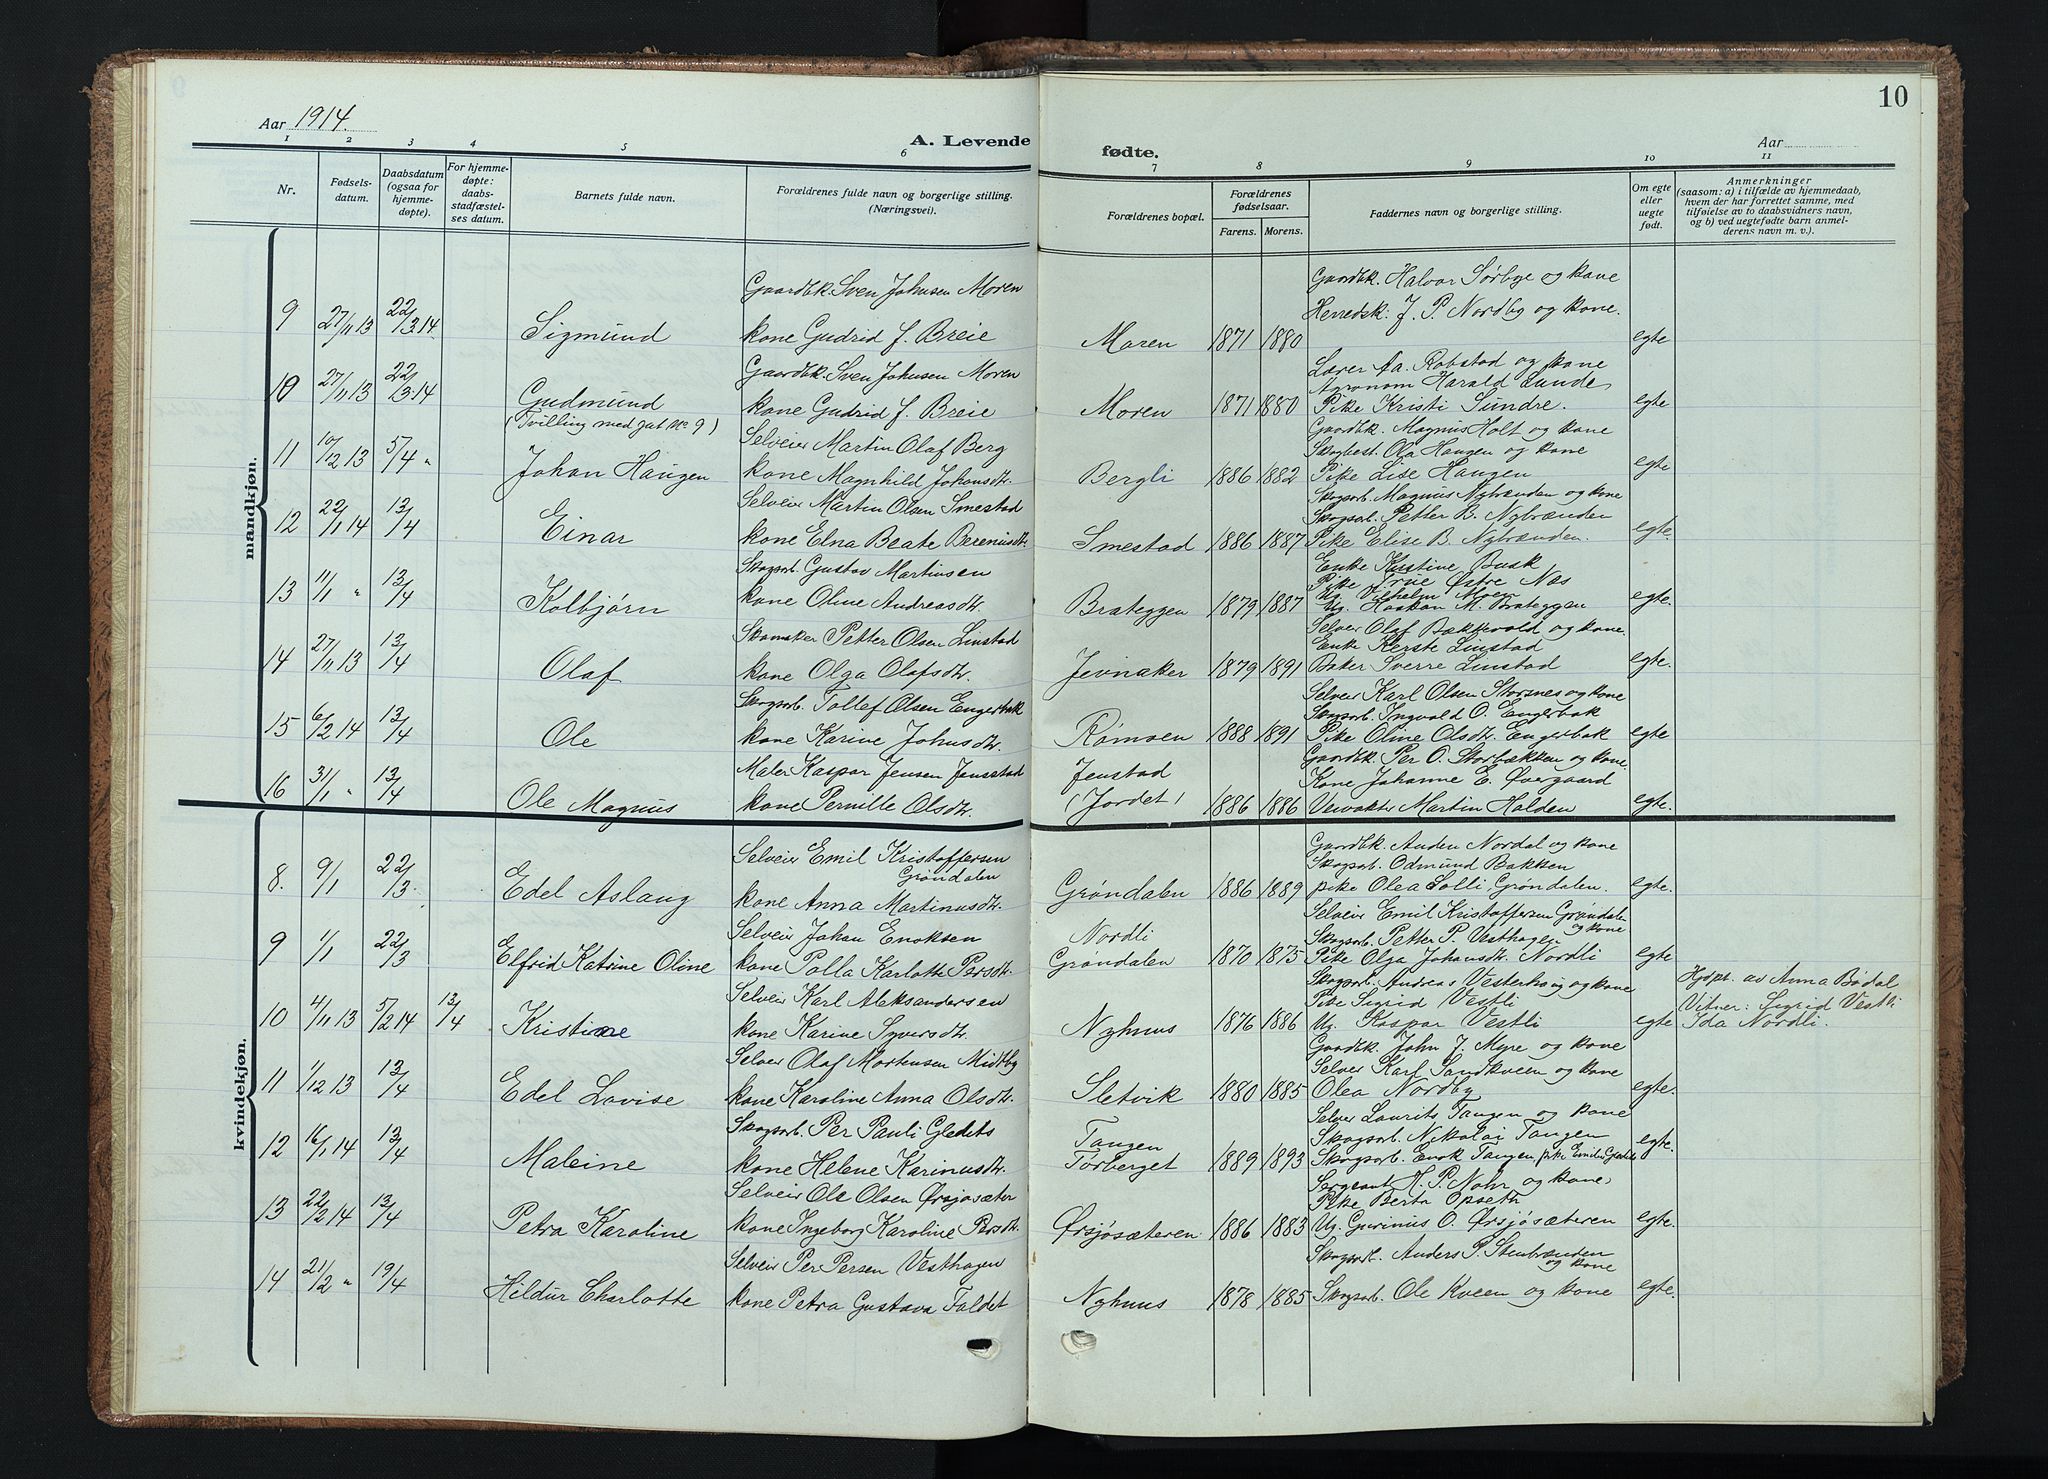 10
Aar 1914.
A. Levende
fødte.
Aar
1 2 3 4 5 6 7 8 9 10 11
Nr.
Fødsels-
datum.
Daabsdatum
(ogsaa for
hjemme-
døpte).
For hjemme-
døpte:
daabs-
stadfæstel-
ses datum.
Barnets fulde navn.
Forældrenes fulde navn og borgerlige stilling.
(Næringsvei).
Forældrenes bopæl.
Forældrenes
fødselsaar.
Farens. Morens.
Faddernes navn og borgerlige stilling.
Om egte
eller
uegte
født.
Anmerkninger
(saasom: a) i tilfælde av hjemmedaab,
hvem der har forrettet samme, med
tilføielse av to daabsvidners navn,
og b) ved uegtefødte barn anmel-
derens navn m. v.).
mandkjøn.
Gaardbk. Sven Johnsen Moren
Gaardbk. Halvor Sørbye og kone
Herredsk: J. P. Nordby og kone.
9 27/11 13 22/3 14 Sigmund kone Gudrid f. Breie Moren 1871 1880 egte
Gaardbk. Sven Johnsen Moren
Lærer Aa. Robstad og kone
Agronom Harald Lunde
10 27/11 13 22/3 14 Gudmund kone Gudrid f. Breie Moren 1871 1880 Pike Kristi Sundre. egte
(Tvilling med gut No 9)
Selveier Martin Olaf Berg
Gaardbk. Magnus Holt og kone
Skogbest. Ola Haugen og kone
11 10/12 13 5/4 " Johan Haugen kone Magnhild Johansdtr. Bergli 1886 1882 Pike Lise Haugen egte
Selveier Martin Olsen Smestad
Skogsarb. Magnus Nybrænden og kone
Skogsarb. Petter B. Nybrænden
12 22/1 14 13/4 Einar kone Elna Beate Bereniusdtr. Smestad 1886 1887 Pike Elise B. Nybrænden. egte.
Skogsarb. Gustav Martinsen
Enke Kristine Busk
Pike Østre Næs
Ug. Vilhelm Moen
13 11/1 " 13/4 Kolbjørn kone Oline Andreasdtr. Brateggen 1879 1887 Ug. Haakon M. Brateggen egte.
Skomaker Petter Olsen Linstad
Selveier Olaf Bækkevold og kone.
Enke Kerste Linstad
14 27/11 13 13/4 Olaf kone Olga Olafsdtr. Jevnaker 1879 1891 Baker Sverre Linstad egte.
Skogsarb. Tollef Olsen Engerbak
Selveier Karl Olsen Storsnes og kone
Skogsarb. Ingvald O. Engerbak
15 6/2 14 13/4 Ole kone Karine Johnsdtr. Rømoen 1888 1891 Pike Oline Olsdtr. Engerbak egte
Maler Kaspar Jensen Jensstad
Jenstad
Gaardbk. Per O. Storbækken og kone.
Kone Johanne E. Øvergaard
16 31/1 " 13/4 Ole Magnus kone Pernille Olsdtr. (Jordet) 1886 1886 Veivokter Martin Halden egte.
kvindekjøn.
Selveier Emil Kristoffersen
Grøndalen
Gaardbk. Auden Nordal og kone
Skogsarb. Odmund Bakken
8. 9/1 22/3. Edel Aslaug kone Anna Martinusdtr. Grøndalen 1886 1889 pike Olea Solli, Grøndalen. egte.
Selveier Johan Enoksen
Nordli
Selveier Emil Kristoffersen Grøndalen
og kone
Skogsarb. Petter P. Vesthagen
9 1/1 22/3 Elfrid Katrine Oline kone Polla Karlotte Persdtr. Grøndalen 1870 1875 Pike Olga Johansdtr. Nordli egte
Selveier Karl Aleksandersen
Skogsarb. Andreas Vesterhaug og kone
Pike Sigrid Vestli
Hjdpt. av Anna Bødal
Vitner: Sigrid Vestli
10 4/11 13 5/2 14 13/4 Kristine kone Karine Syversdtr. Nyhuus 1876 1886 Ug. Kaspar Vestli egte Ida Nordli.
Selveier Olaf Mortensen Midtby
Gaardbk. John J. Myre og kone
Selveier Karl Sandkveen og kone
11 1/12 13 13/4 Edel Lovise kone Karoline Anna Olsdtr. Sletvik 1880 1885 Olea Nordby egte.
Skogsarb. Per Pauli Gledits
Tangen
Selveier Laurits Tangen og kone
Skogsarb. Nikolai Tangen
12 16/1 14 13/4 Maleine kone Helene Karinusdtr. Torberget 1889 1893 Skogsarb. Enok Tangen, pike egte.
Selveier Ole Olsen Ørsjøsæter
Sergeant H. P. Nohr og kone,
Pike Berta Opseth
13 22/2 14 13/4 Petra Karoline kone Ingeborg Karoline Persdtr. Ørsjøsæteren 1886 1883 Ug. Gurinus O. Ørsjøsæteren egte.
Selveier Per Persen Vesthagen
Skogsarb. Anders P. Stenbrænden
og kone
14 21/2 " 19/4 Hildur Charlotte kone Petra Gustava Faldet Nyhuus 1878 1885 Skogsarb. Ole Kveen og kone egte.